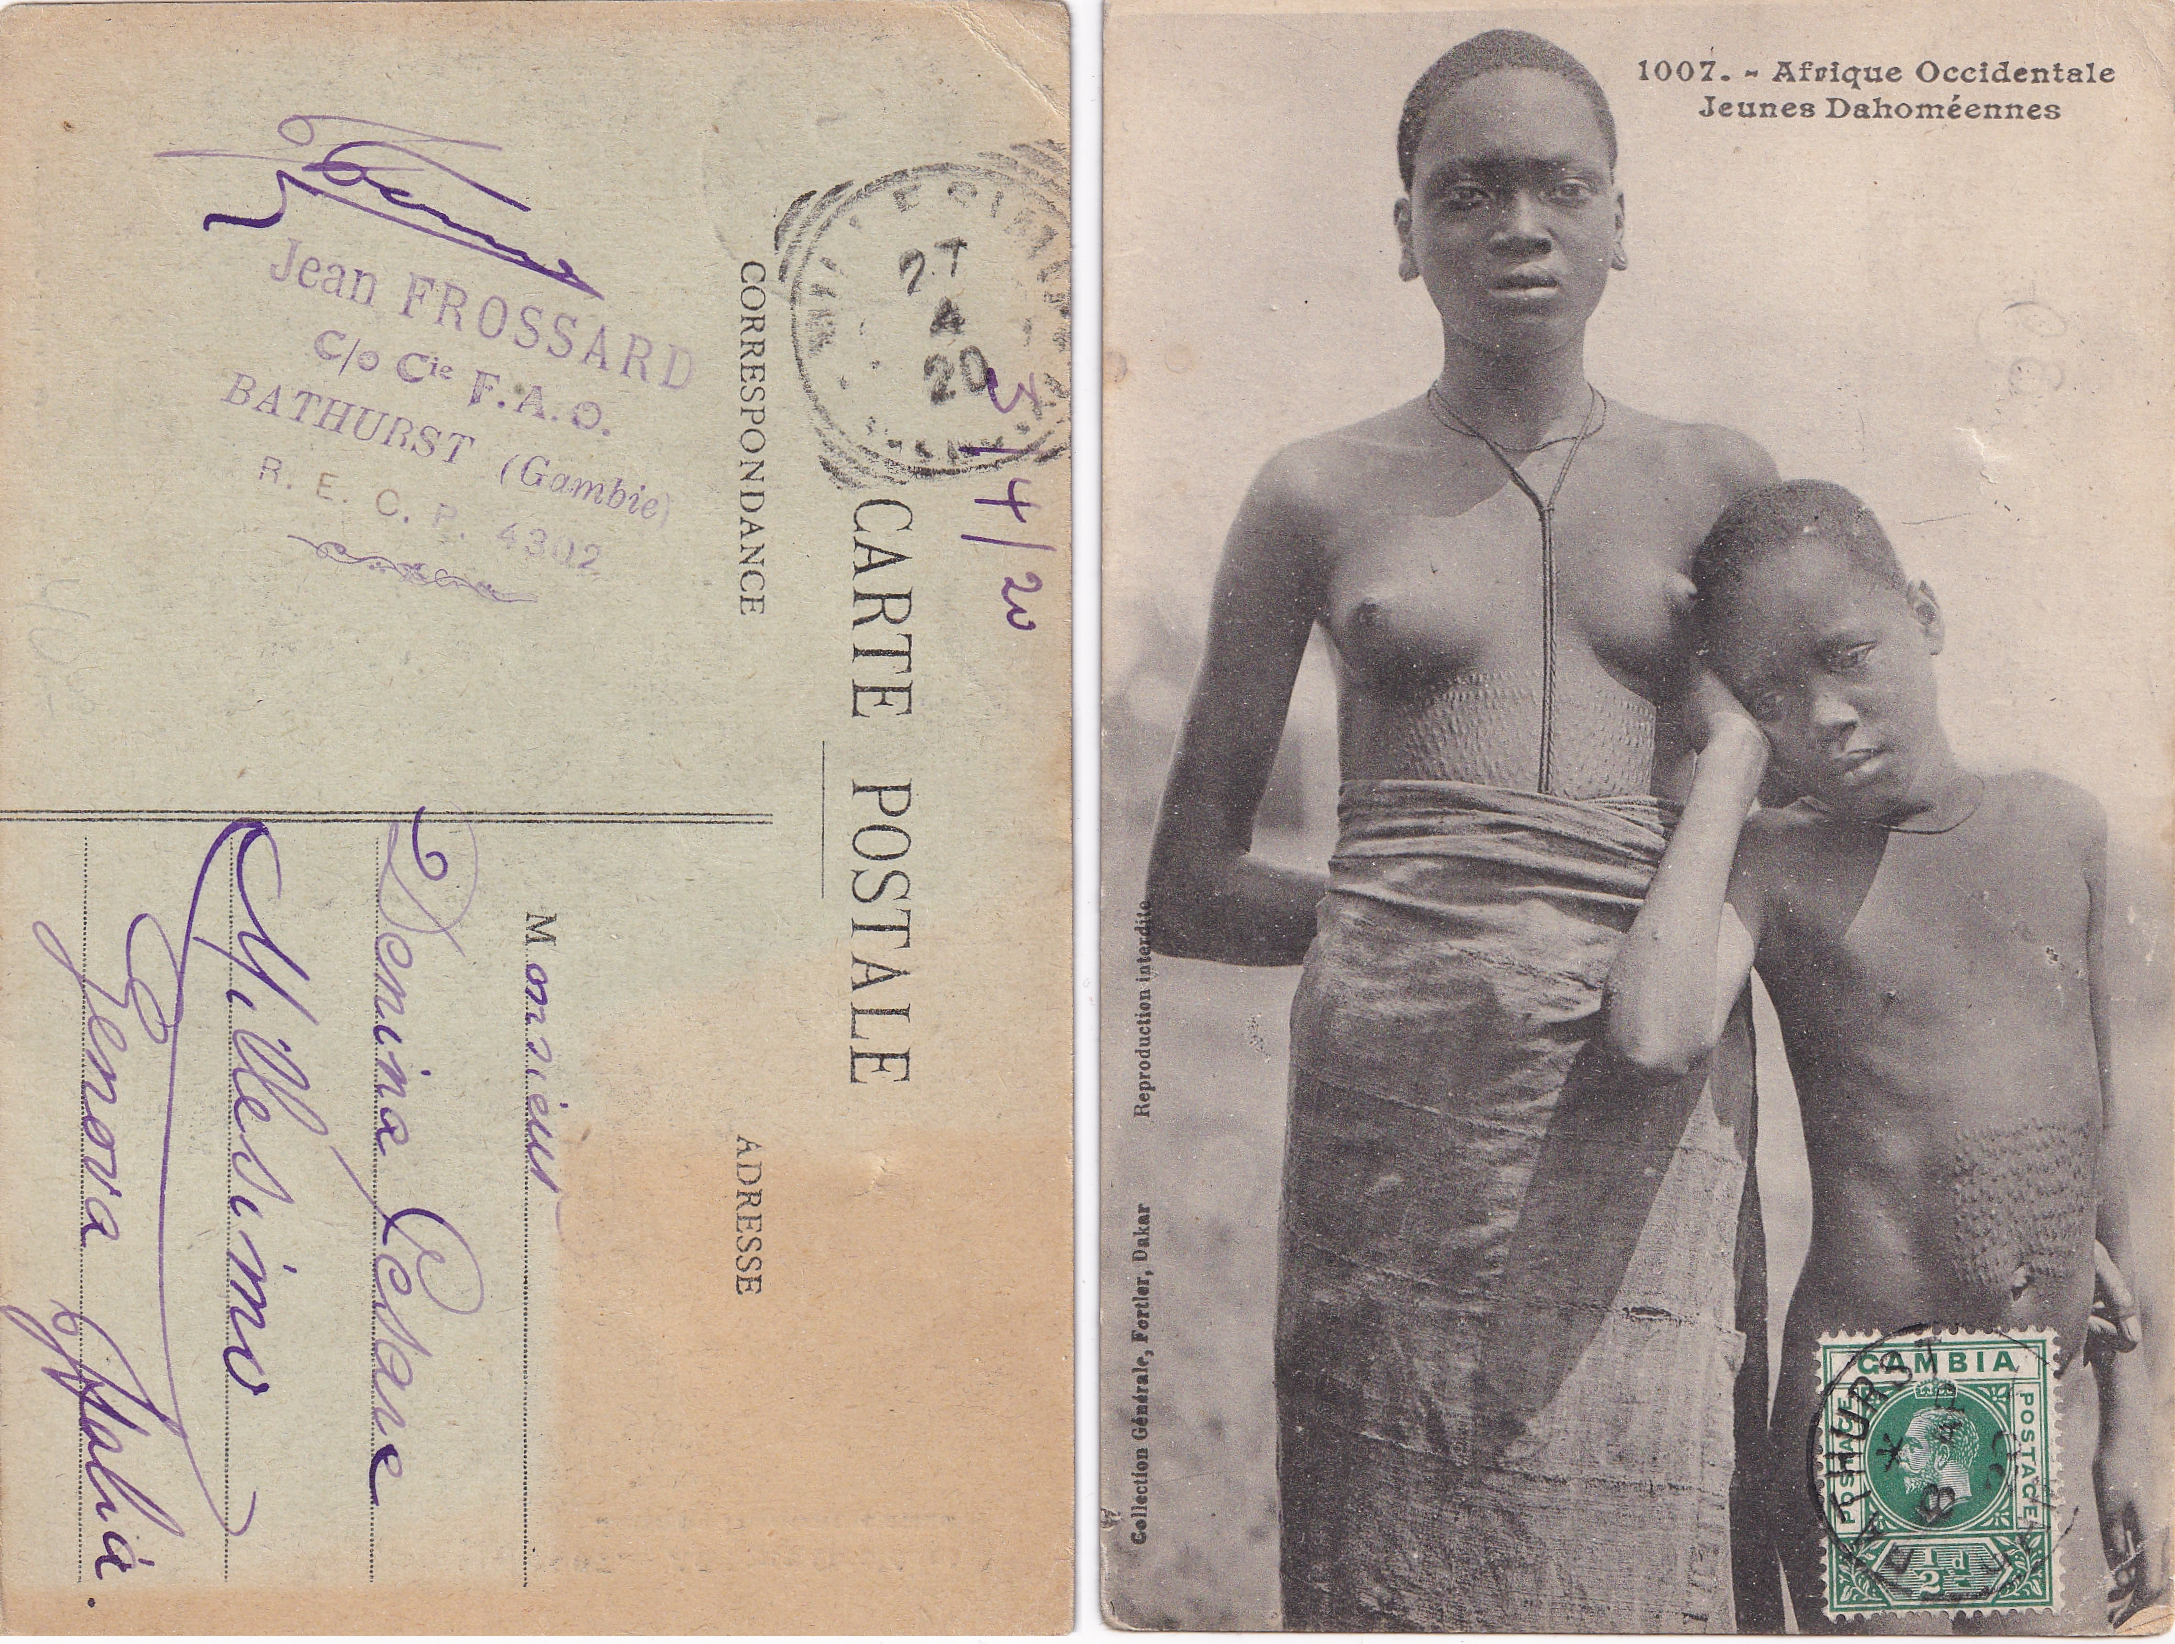 Jean FROSSARD
C/o Cie F.A.O.
BATHURST (Gambie)
R. E. C. P. 4302
CORRESPONDANCE
27
4
20
5/4/20
CARTE POSTALE
ADRESSE
Monsieur
Denina Cesare
Millesimo
Genova Italia
1007. - Afrique Occidentale
Jeunes Dahoméennes
Reproduction interdite
Collection Générale, Fortier, Dakar
GAMBIA
POSTAGE
POSTAGE
½d
BATHURST
8
AP
20